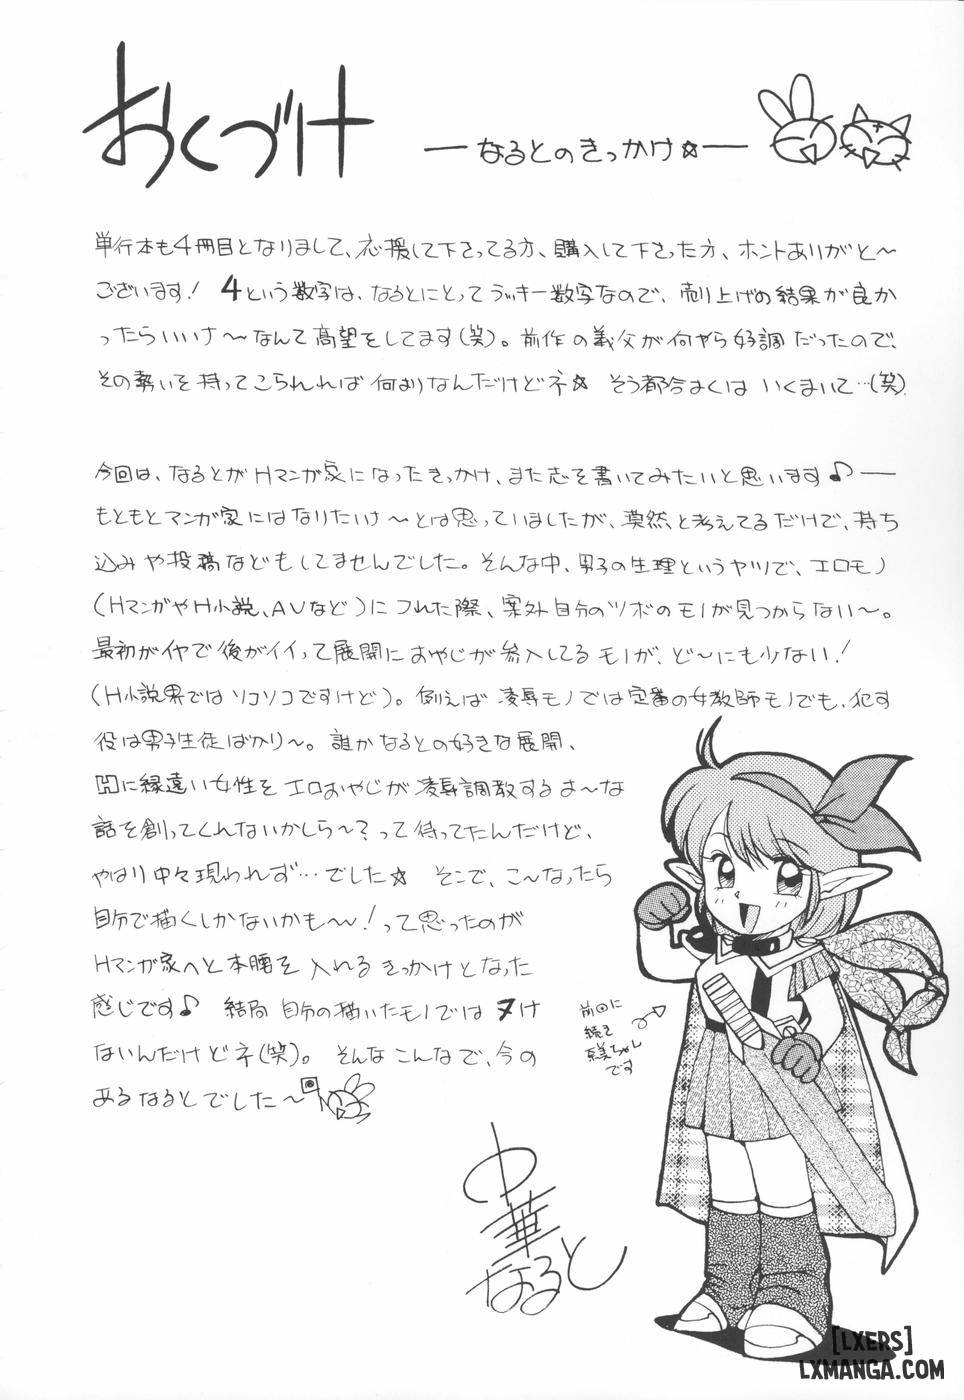 おくづけ
ーなるとのきっかけ☆ー
単行本も4冊目となりまして、応援して下さってる方、購入して下さった方、ホントありがと〜
ございます! 4という数字は、なるとにとってラッキー数字なので、売り上げの結果が良か
ったらいいナ〜なんて高望をしてます(笑)。前作の義父が何やら好調だったので、
その勢いを持ってこられれば何よりなんだけどネ☆ そう都合よくはいくまいて…(笑)
今回は、なるとがHマンガ家になったきっかけ、また志を書いてみたいと思います♪ー
もともとマンガ家にはなりたいナ〜とは思っていましたが、漠然と考えてるだけで、持ち
込みや投稿などもしてませんでした。そんな中、男子の生理というヤツで、エロモノ
(HマンガやH小説、AVなど)にフれた際、案外自分のツボのモノが見つからない〜。
最初がイヤで後がイイって展開におやじが参入してるモノが、ど〜にも少ない!
(H小説界ではソコソコですけど)。例えば凌辱モノでは定番の女教師モノでも、犯す
役は男子生徒ばかり〜。誰かなるとの好きな展開、
Hに縁遠い女性をエロおやじが凌辱調教するよ〜な
話を創ってくれないかしら〜?って待ってたんだけど、
やはり中々現われず…でした☆ そこで、こ〜なったら
自分で描くしかないかも〜!って思ったのが
Hマンガ家へと本腰を入れるきっかけとなった
感じです♪ 結局自分の描いたモノではヌけ
ないんだけどネ(笑)。そんなこんなで、今の
あるなるとでした〜
前回に
続き
ちゃん
です
中華
なると
[LXERS]
LXMANGA.COM